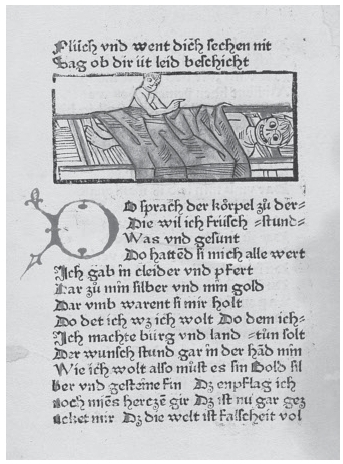 Flüch vnd went dich sechen nit
Sag ob dir üt leid beschicht
DO sprach der körpel zů der=
Die wil ich früsch =stund=
Was vnd gesunt
Do hattēd si mich alle wert
Ich gab in cleider vnd pfert
Dar zů min silber vnd min gold
Dar vmb warent si mir holt
Do det ich wz ich wolt Do dem ich=
Ich machte bürg vnd land =tůn solt
Der wunsch stund gar in der hād min
Wie ich wolt also můst es sin Gold sil
ber vnd gesteine fin Dz enpflag ich
noch mīes herczē gir Dz ist nu gar gez
ucket mir Dz die welt ist falscheit vol